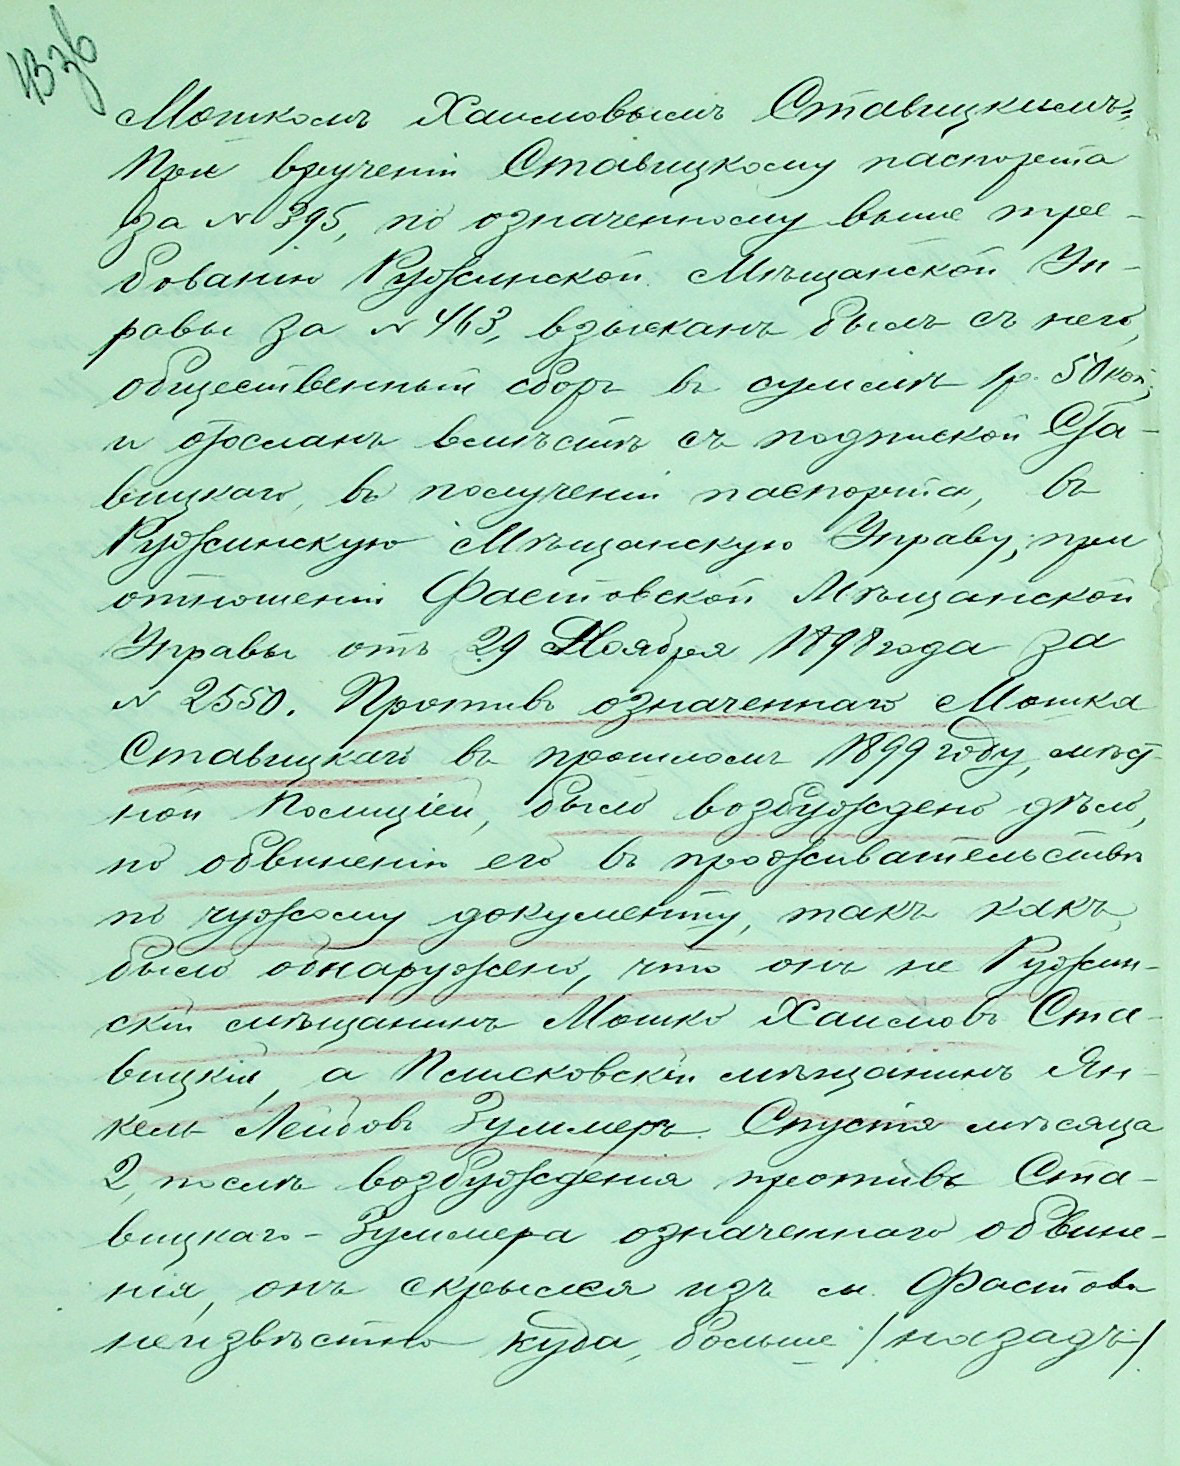 Мошкомъ Хаимовымъ Ставицкимъ.
При врученіи Ставицкому паспорта
за N 395, по означенному выше тре-
бованію Ружинской Мѣщанской Уп-
равы за N 463, взысканъ былъ съ него,
общественный сборъ въ суммѣ 1 р. 50 коп.
и отосланъ вмѣстѣ съ подпиской Ста-
вицкаго, въ полученіи паспорта, въ
Ружинскую Мѣщанскую Управу, при
отношеніи Фастовской Мѣщанской
Управы отъ 29 Ноября 1898 года за
N 2550. Противъ означеннаго Мошка
Ставицкаго въ прошломъ 1899 году, мѣст-
ной Полиціей, было возбуждено дѣло,
по обвиненію его въ проживательствѣ
по чужому документу, такъ какъ
было обнаружено, что онъ не Ружин-
скій мѣщанинъ Мошко Хаимовъ Ста-
вицкій, а Плисковскій мѣщанинъ Ян-
кель Лейбовъ Зуммеръ. Спустя мѣсяца
2, послѣ возбужденія противъ Ста-
вицкаго-Зуммера означеннаго обвине-
нія, онъ скрылся изъ м. Фастова
неизвѣстно куда, больше /назадъ/